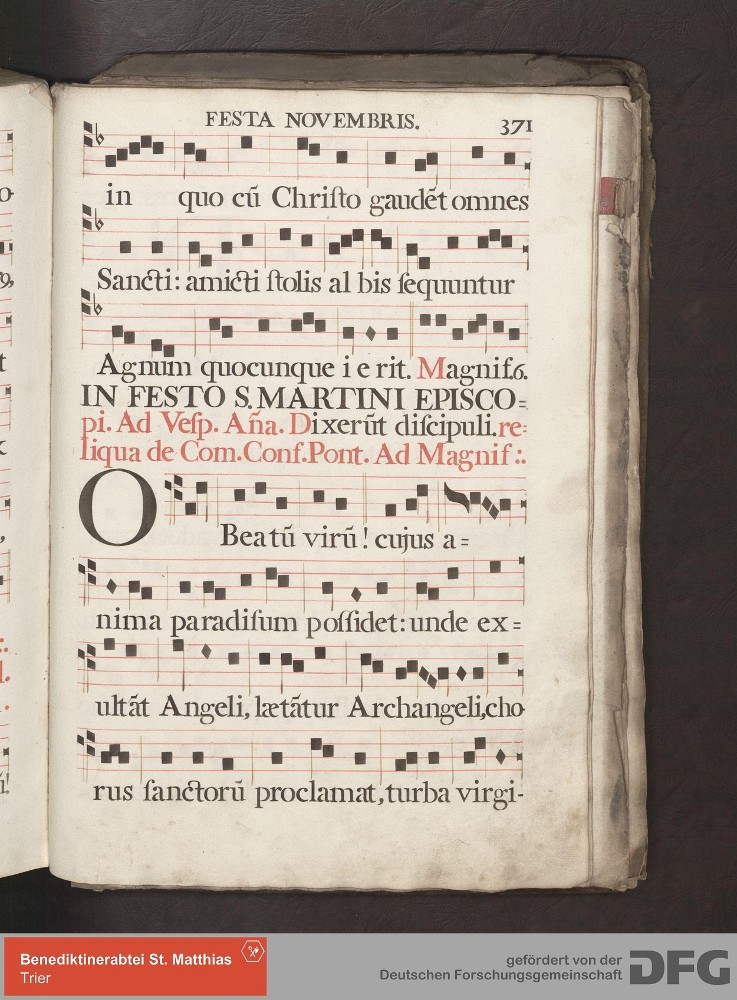 FESTA NOVEMBRIS. 371
in quo cū Chriſto gaudēt omnes
Sancti: amicti ſtolis al bis ſequuntur
Agnum quocunque i e rit. Magnif.6.
IN FESTO S. MARTINI EPISCO=
pi. Ad Veſp. Aña. Dixerūt diſcipuli.re=
liqua de Com.Conf.Pont. Ad Magnif:.
O Beatū virū! cujus a=
nima paradiſum poſſidet: unde ex=
ultāt Angeli, lætātur Archangeli,cho
rus ſanctorū proclamat, turba virgi-
Benediktinerabtei St. Matthias
Trier
gefördert von der
Deutschen Forschungsgemeinschaft DFG